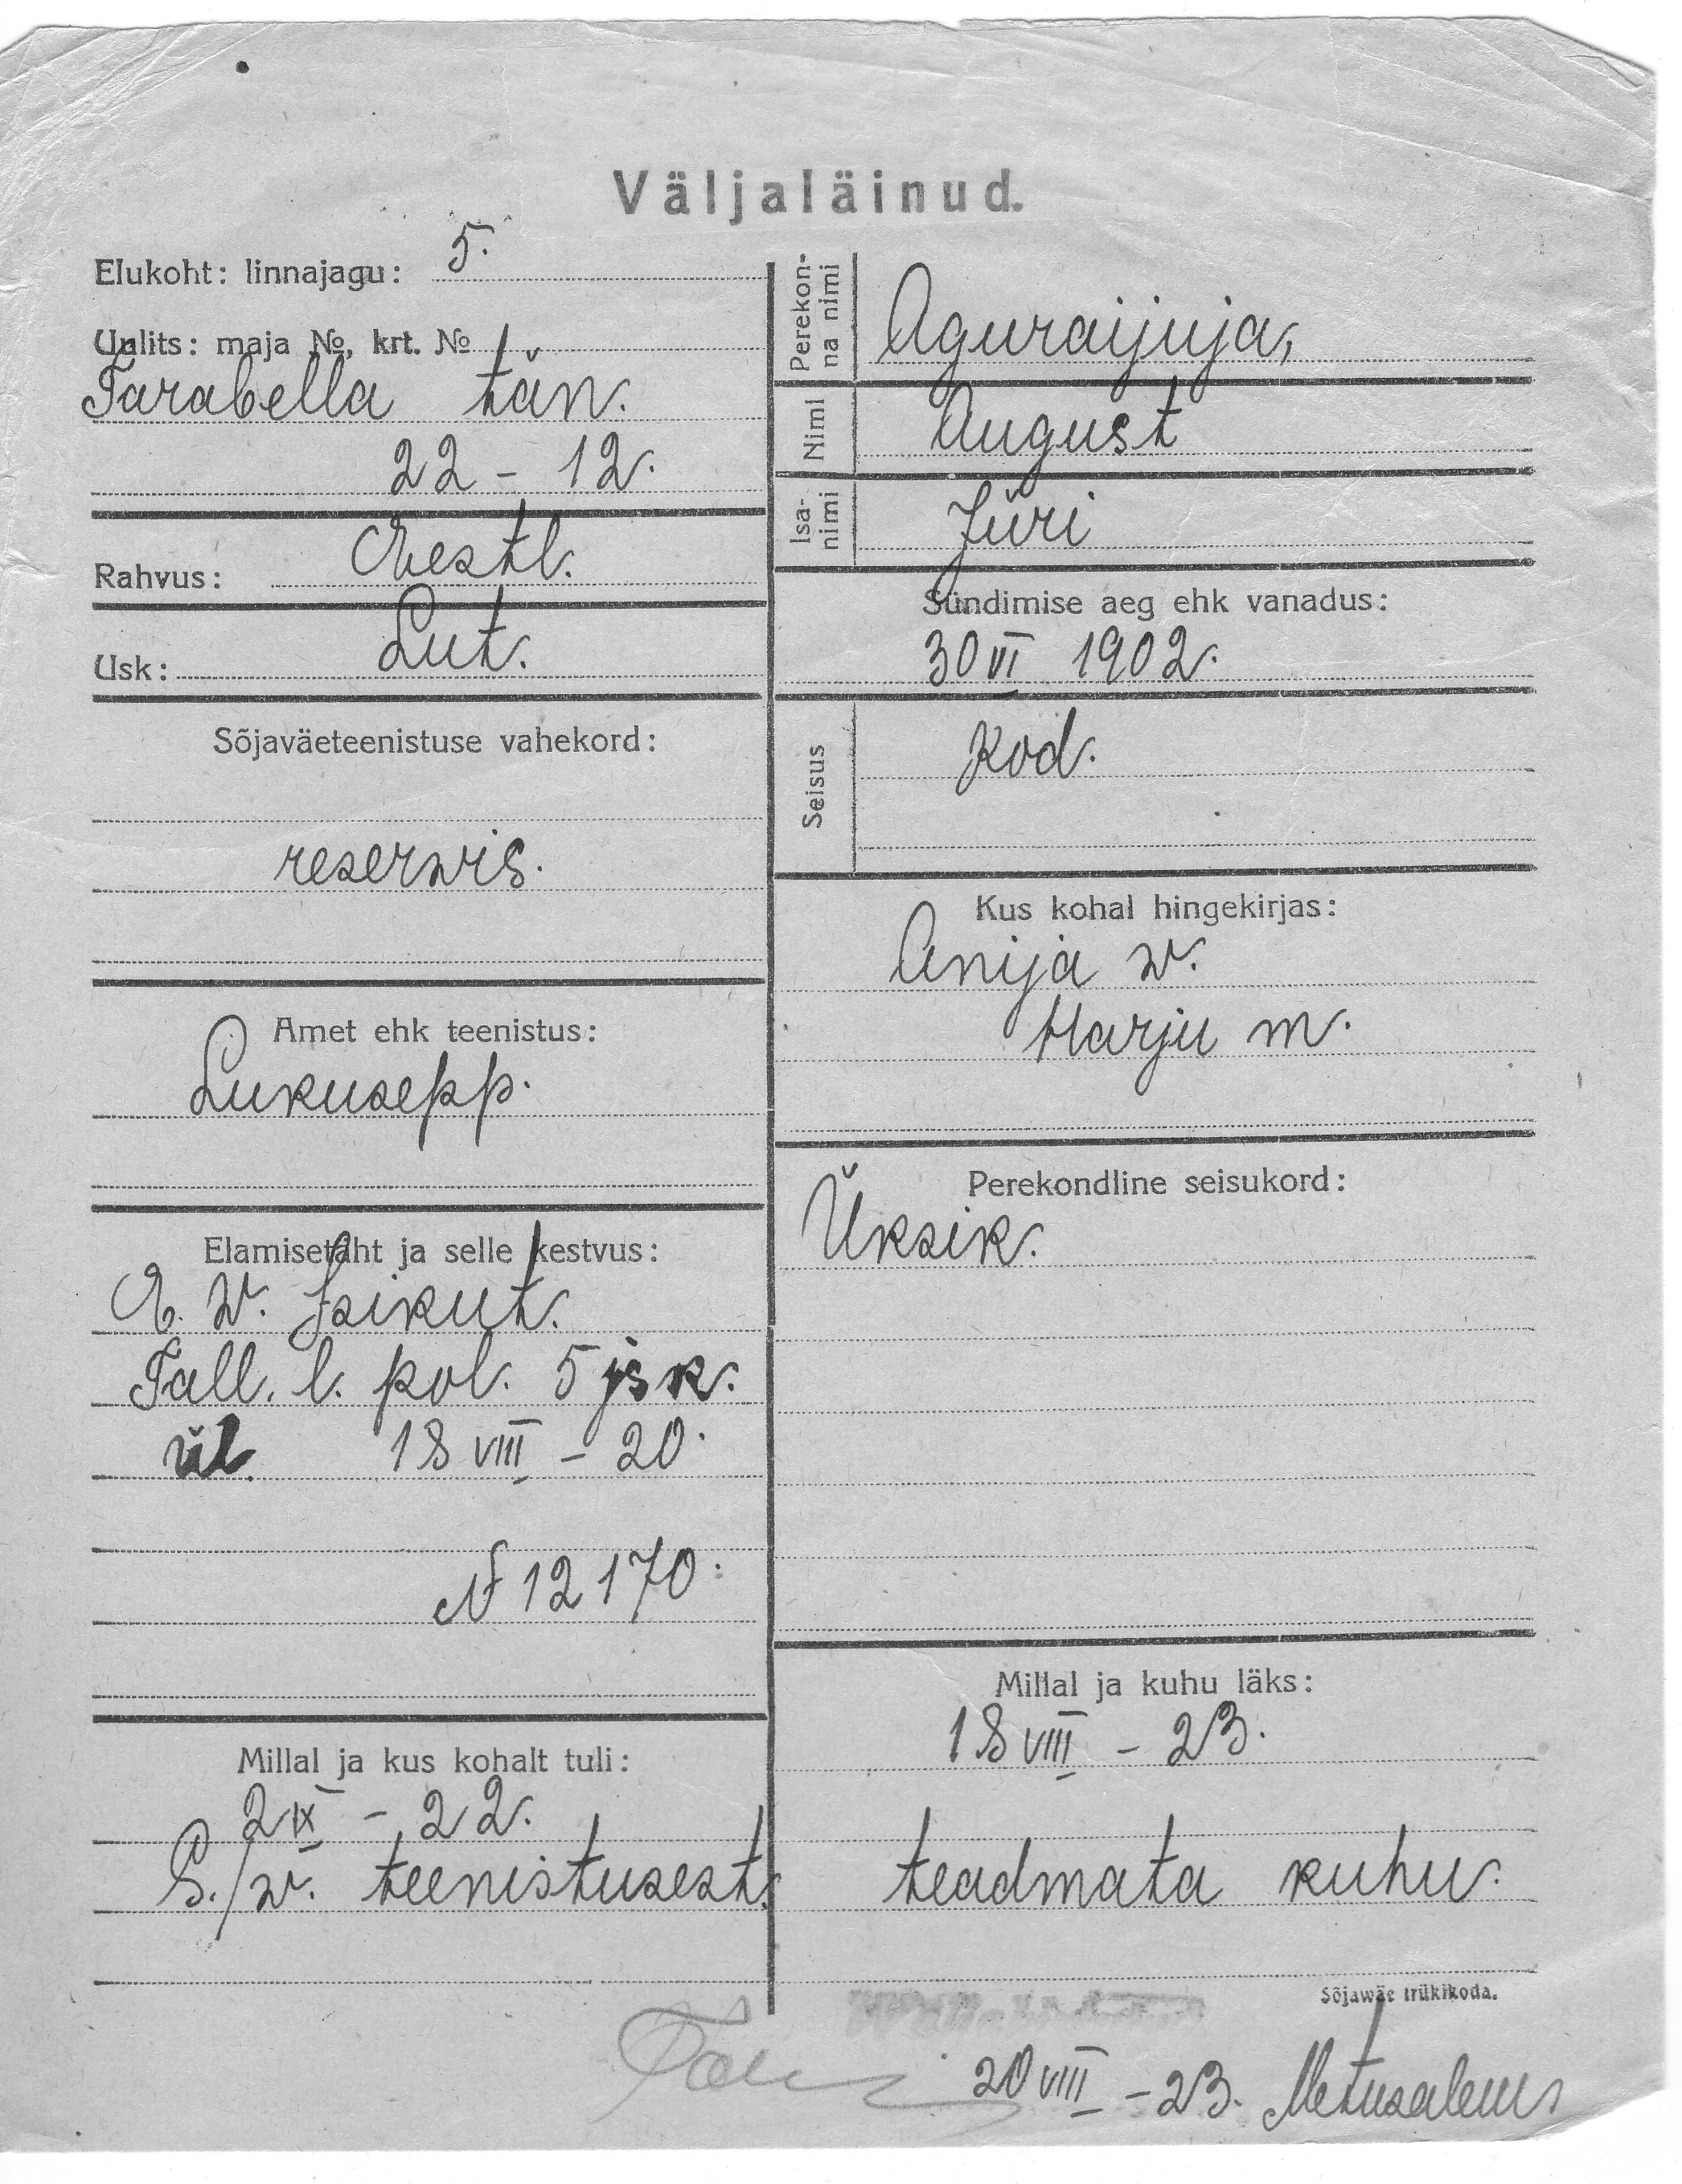 Väljaläinud.
Elukoht: linnajagu: 5.
Uulits: maja №, krt. №
Tarabella tän.
22 - 12.
Rahvus: Eestl.
Usk: Lut.
Sõjaväeteenistuse vahekord:
reserwis.
Amet ehk teenistus:
Lukusepp.
Elamisetäht ja selle kestvus:
E. W. Isikut.
Tall. l. pol. 5 jsk.
ül. 18 VIII - 20.
N 12170.
Millal ja kus kohalt tuli:
2 IX - 22.
S./w. teenistusest.
Perekonna nimi
Aguraijuja,
Nimi
August
Isanimi
Jüri
Sündimise aeg ehk vanadus:
30 VI 1902.
Seisus
Kod.
Kus kohal hingekirjas:
Anija w.
Harju m.
Perekondline seisukord:
Üksik.
Millal ja kuhu läks:
18 VIII - 23.
teadmata kuhu.
Sõjawäe trükikoda.
20 VIII - 23. Metusalem